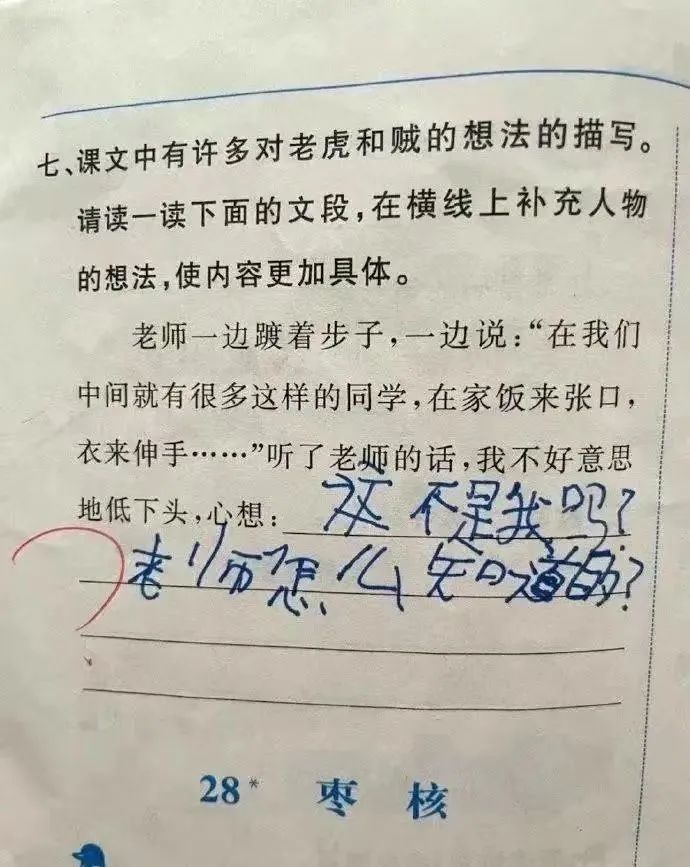 七、课文中有许多对老虎和贼的想法的描写。
请读一读下面的文段,在横线上补充人物
的想法,使内容更加具体。
老师一边踱着步子,一边说:“在我们
中间就有很多这样的同学,在家饭来张口,
衣来伸手……”听了老师的话,我不好意思
地低下头,心想:这不是我吗?
老师怎么知道的?
28* 枣核